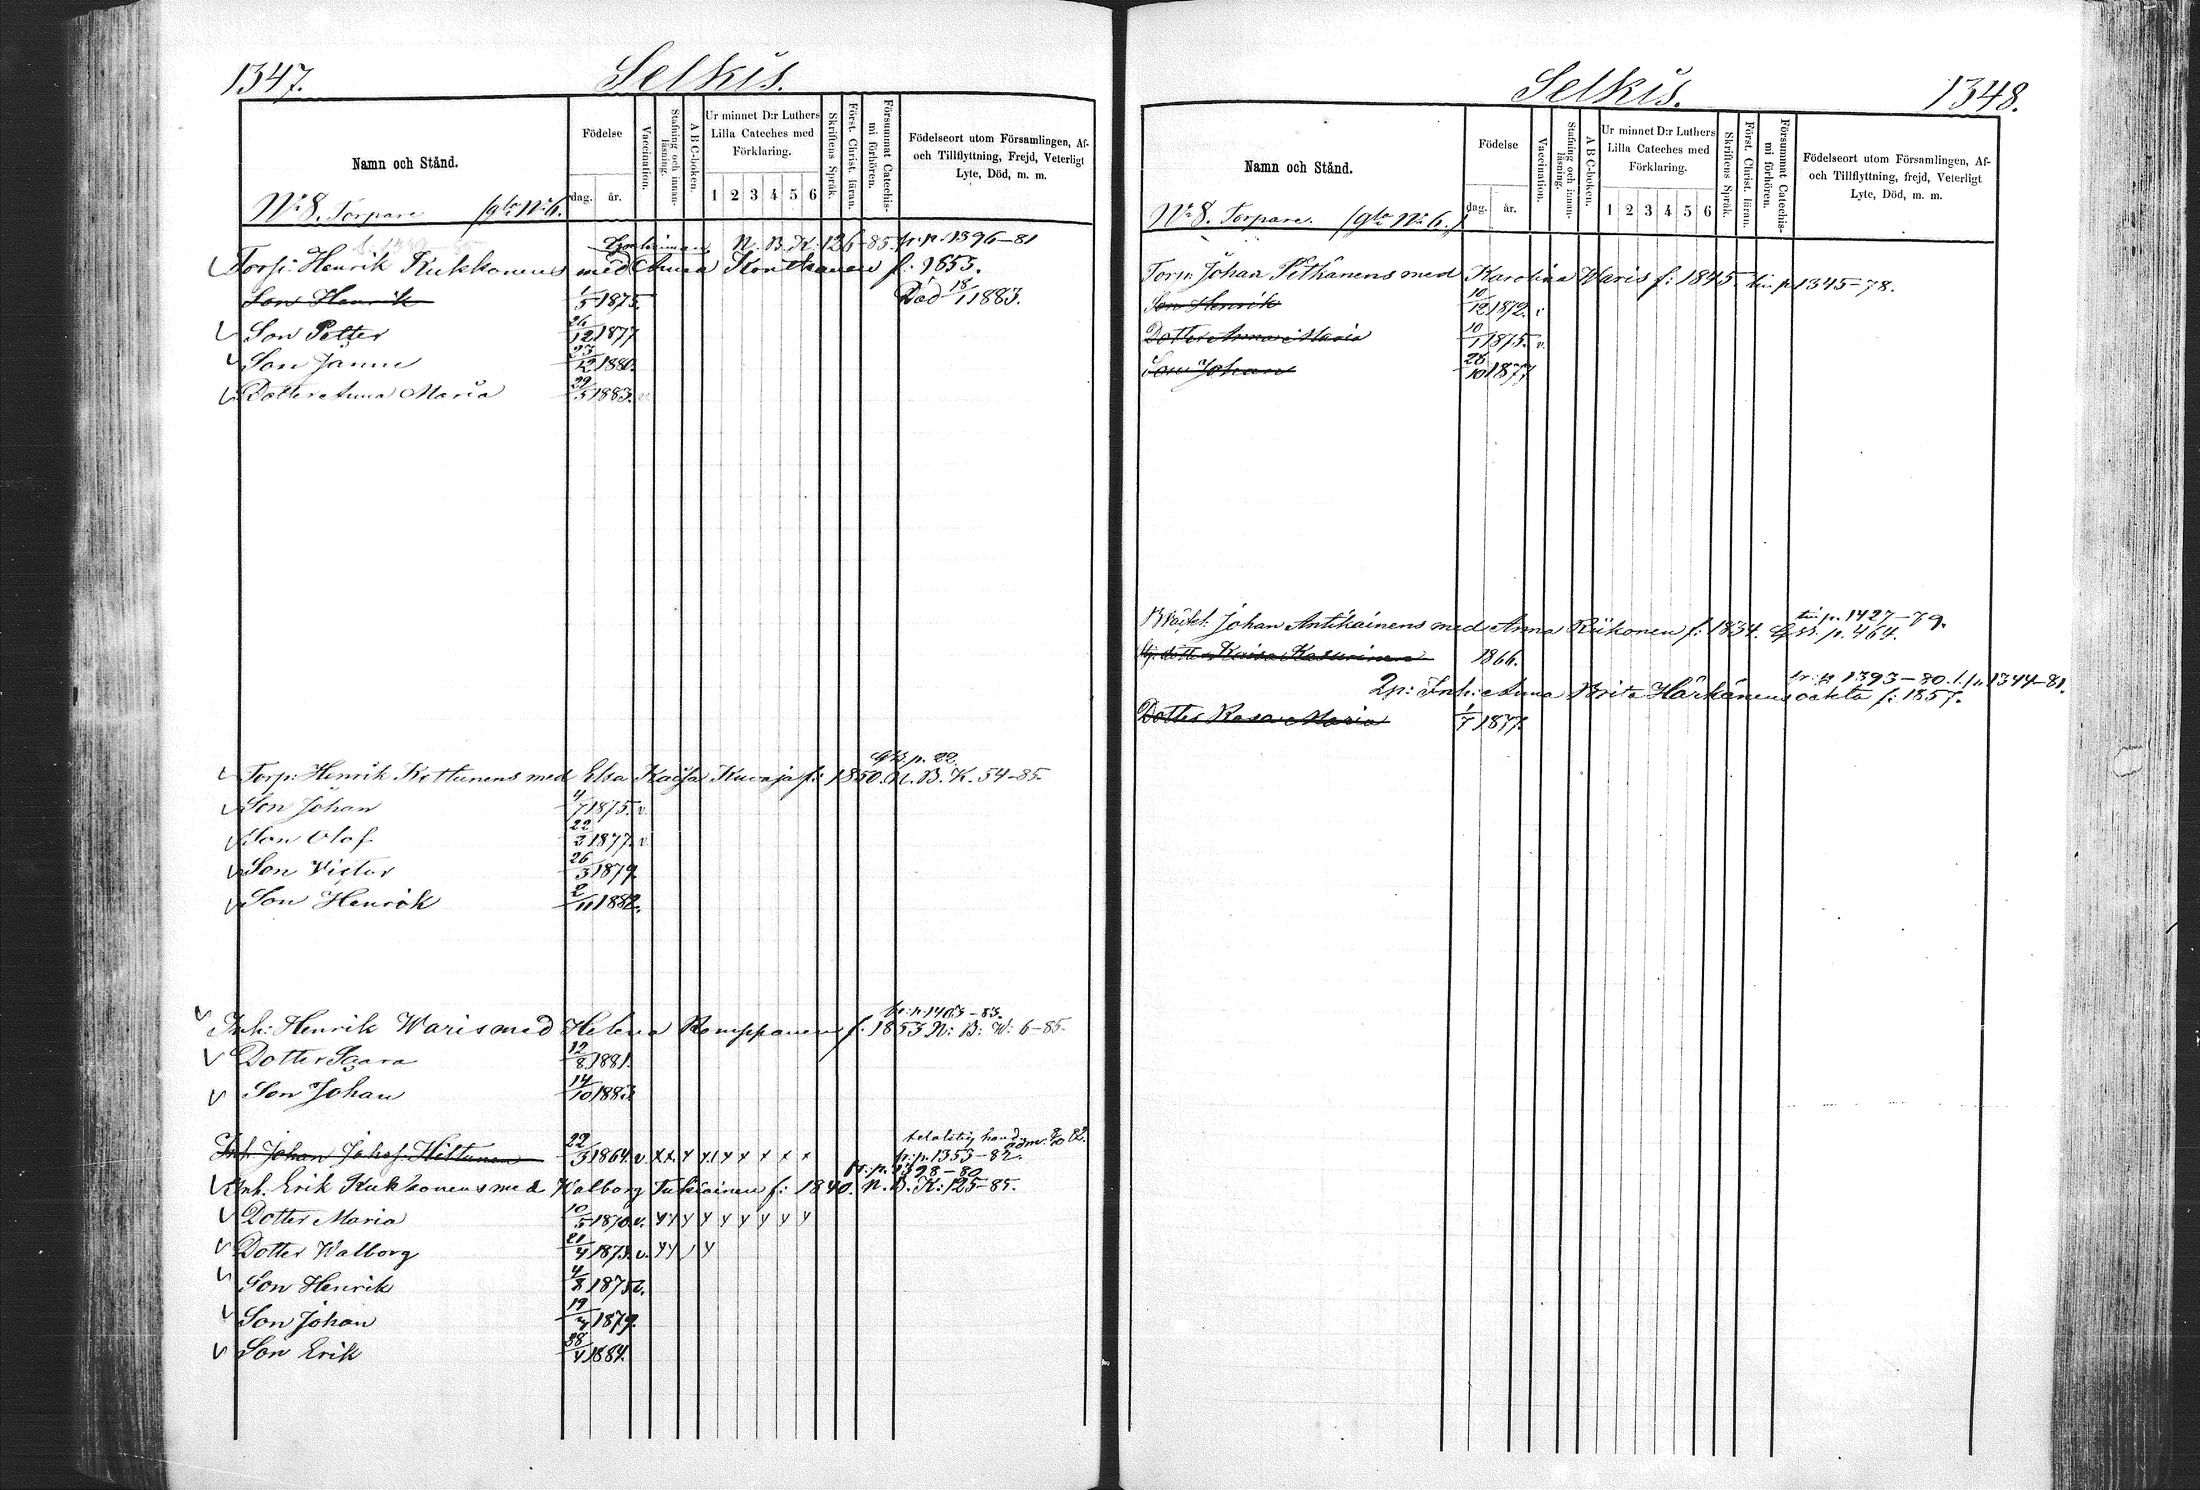 1347.
Selkis.
Namn och Stånd.
Födelse
dag.
år.
Vaccination.
Stafning och innanläsning.
A B C-boken.
Ur minnet D:r Luthers
Lilla Cateches med
Förklaring.
1 2 3 4 5 6
Skriftens Språk.
Först. Christ. läran.
Försummat Catechismi förhören.
Födelseort utom Församlingen, Af-
och Tillflyttning, Frejd, Veterligt
Lyte, Död, m. m.
N:o 8. Torpare
N. B. K. 126-85. fr. p. 1396-81
Torp: Henrik Kukkonens med Anna Kontkanen f: 1853.
Son Henrik 1/5 1875. Död 18/1 1883.
Son Petter 26/12 1877
Son Janne 23/12 1880.
Dotter Anna Maria 29/5 1883.
p. 22.
Torp: Henrik Kettunens med Elsa Kaisa Kuvaja f: 1850. N. B. K. 54-85.
Son Johan 4/7 1875. v.
Son Olof 22/2 1877. v.
Son Victor 26/3 1879.
Son Henrik 2/11 1882.
fr. p. 1403-83.
Inh: Henrik Waris med Helena Romppanen f: 1853 N: B: W: 6-85.
Dotter Saara 12/8 1881.
Son Johan 14/10 1883
Inh. Johan Johsf. Hiltunen 22/3 1864. v. x x x x x x x x x
fr. p. 1353-82.
fr. p. 1398-80
Inh. Erik Kukkonens med Walborg Tukiainen f: 1840. N. B. K: 125-85.
Dotter Maria 10/5 1870. v. y y y y y y y y y
Dotter Walborg 21/4 1873. v. y y y
Son Henrik 4/8 1875. v.
Son Johan 19/7 1879.
Son Erik 28/4 1884.
Selkis.
1348.
Namn och Stånd.
Födelse
dag.
år.
Vaccination.
Stafning och innanläsning.
A B C-boken.
Ur minnet D:r Luthers
Lilla Cateches med
Förklaring.
1 2 3 4 5 6
Skriftens Språk.
Först. Christ. läran.
Försummat Catechismi förhören.
Födelseort utom Församlingen, Af-
och Tillflyttning, frejd, Veterligt
Lyte, Död, m. m.
N:o 8. Torpare.
Torp: Johan Pitkänens med Karolina Waris f: 1845 till p 1345-78.
Son Henrik 10/12 1872.
Dotter Anna Maria 10/1 1875. v.
Son Johan 28/10 1877
till p. 1427-79.
Johan Antikainens med Anna Riikonen f: 1834. p. 464.
Kaisa Kasurinen 1866.
fr. p 1393-80. t. p. 1344-81.
2p: Inh: Anna Brita Härkänens oäkta f: 1857.
Dotter Rosa Maria 1/7 1877.